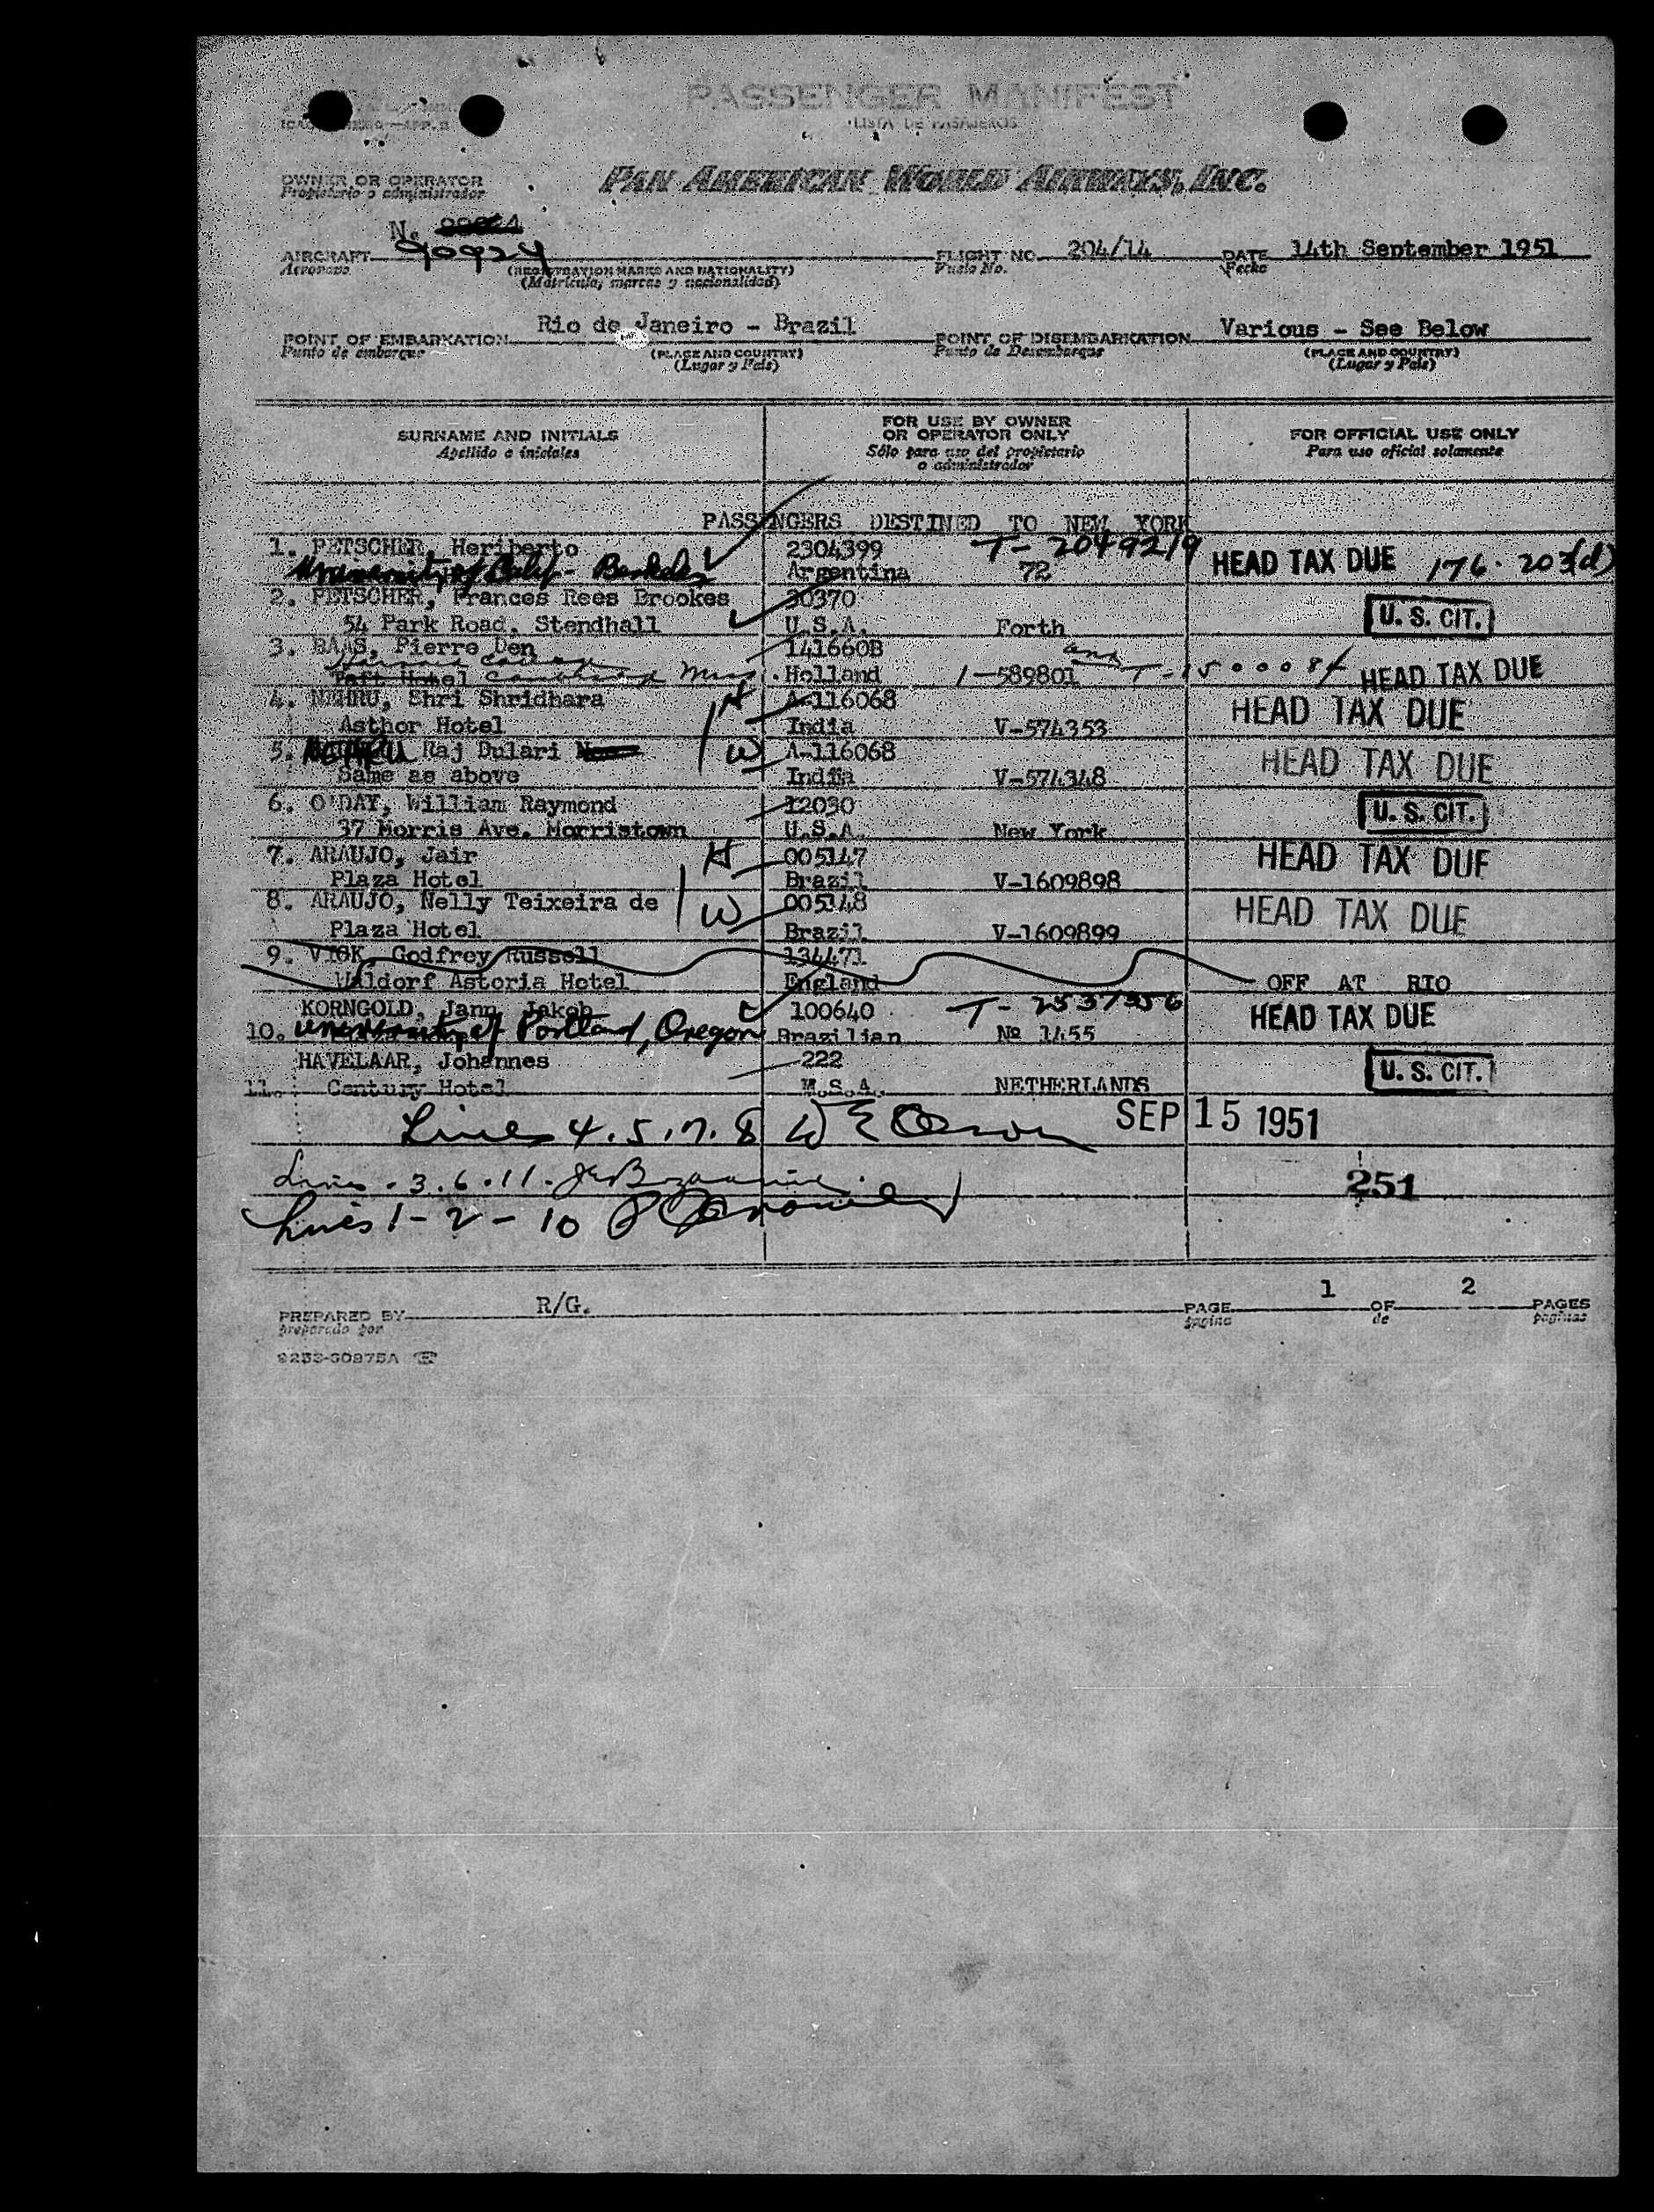 PASSENGER MANIFEST
LISTA DE PASAJEROS
OWNER OR OPERATOR
Propietario o administrador
PAN AMERICAN WORLD AIRWAYS, INC.
N.
AIRCRAFT 90924 FLIGHT NO. 204/14 DATE 14th September 1951
Aeronave (REGISTRATION MARKS AND NATIONALITY) Vuelo No. Fecha
(Matrícula, marcas y nacionalidad)
POINT OF EMBARKATION Rio de Janeiro - Brazil POINT OF DISEMBARKATION Various - See Below
Punto de embarque (PLACE AND COUNTRY) Punto de Desembarque (PLACE AND COUNTRY)
(Lugar y País) (Lugar y País)
SURNAME AND INITIALS FOR USE BY OWNER OR OPERATOR ONLY FOR OFFICIAL USE ONLY
Apellido e iniciales Sólo para uso del propietario o administrador Para uso oficial solamente
PASSENGERS DESTINED TO NEW YORK
1. PETSCHER, Heriberto 2304399 T-2049219
University of Calif - Berkeley Argentina 72 HEAD TAX DUE 176.203(d)
2. PETSCHER, Frances Rees Brookes 30370 U. S. CIT.
54 Park Road, Stendhall U.S.A. Forth
3. BAAS, Pierre Den 141660B and
Taft Hotel Holland 1-589801 T-1500084 HEAD TAX DUE
4. NEHRU, Shri Shridhara H A-116068 HEAD TAX DUE
Asthor Hotel India V-574353
5. NEHRU Raj Dulari W A-116068 HEAD TAX DUE
Same as above India V-574348
6. O'DAY, William Raymond 12090 U. S. CIT.
37 Morris Ave. Morristown U.S.A. New York
7. ARAUJO, Jair H 005147 HEAD TAX DUE
Plaza Hotel Brazil V-1609898
8. ARAUJO, Nelly Teixeira de W 005148 HEAD TAX DUE
Plaza Hotel Brazil V-1609899
9. VICK, Godfrey Russell 134471
Waldorf Astoria Hotel England OFF AT RIO
KORNGOLD, Jann Jakob 100640 T-2537356 HEAD TAX DUE
10. University of Portland, Oregon Brazilian Nº 1455
HAVELAAR, Johannes 222 U. S. CIT.
11. Century Hotel M.S.A. NETHERLANDS
Lines 4.5.7.8 SEP 15 1951
Lines . 3.6.11. 251
Lines 1-2-10
PREPARED BY R/G. PAGE 1 OF 2 PAGES
preparado por página de páginas